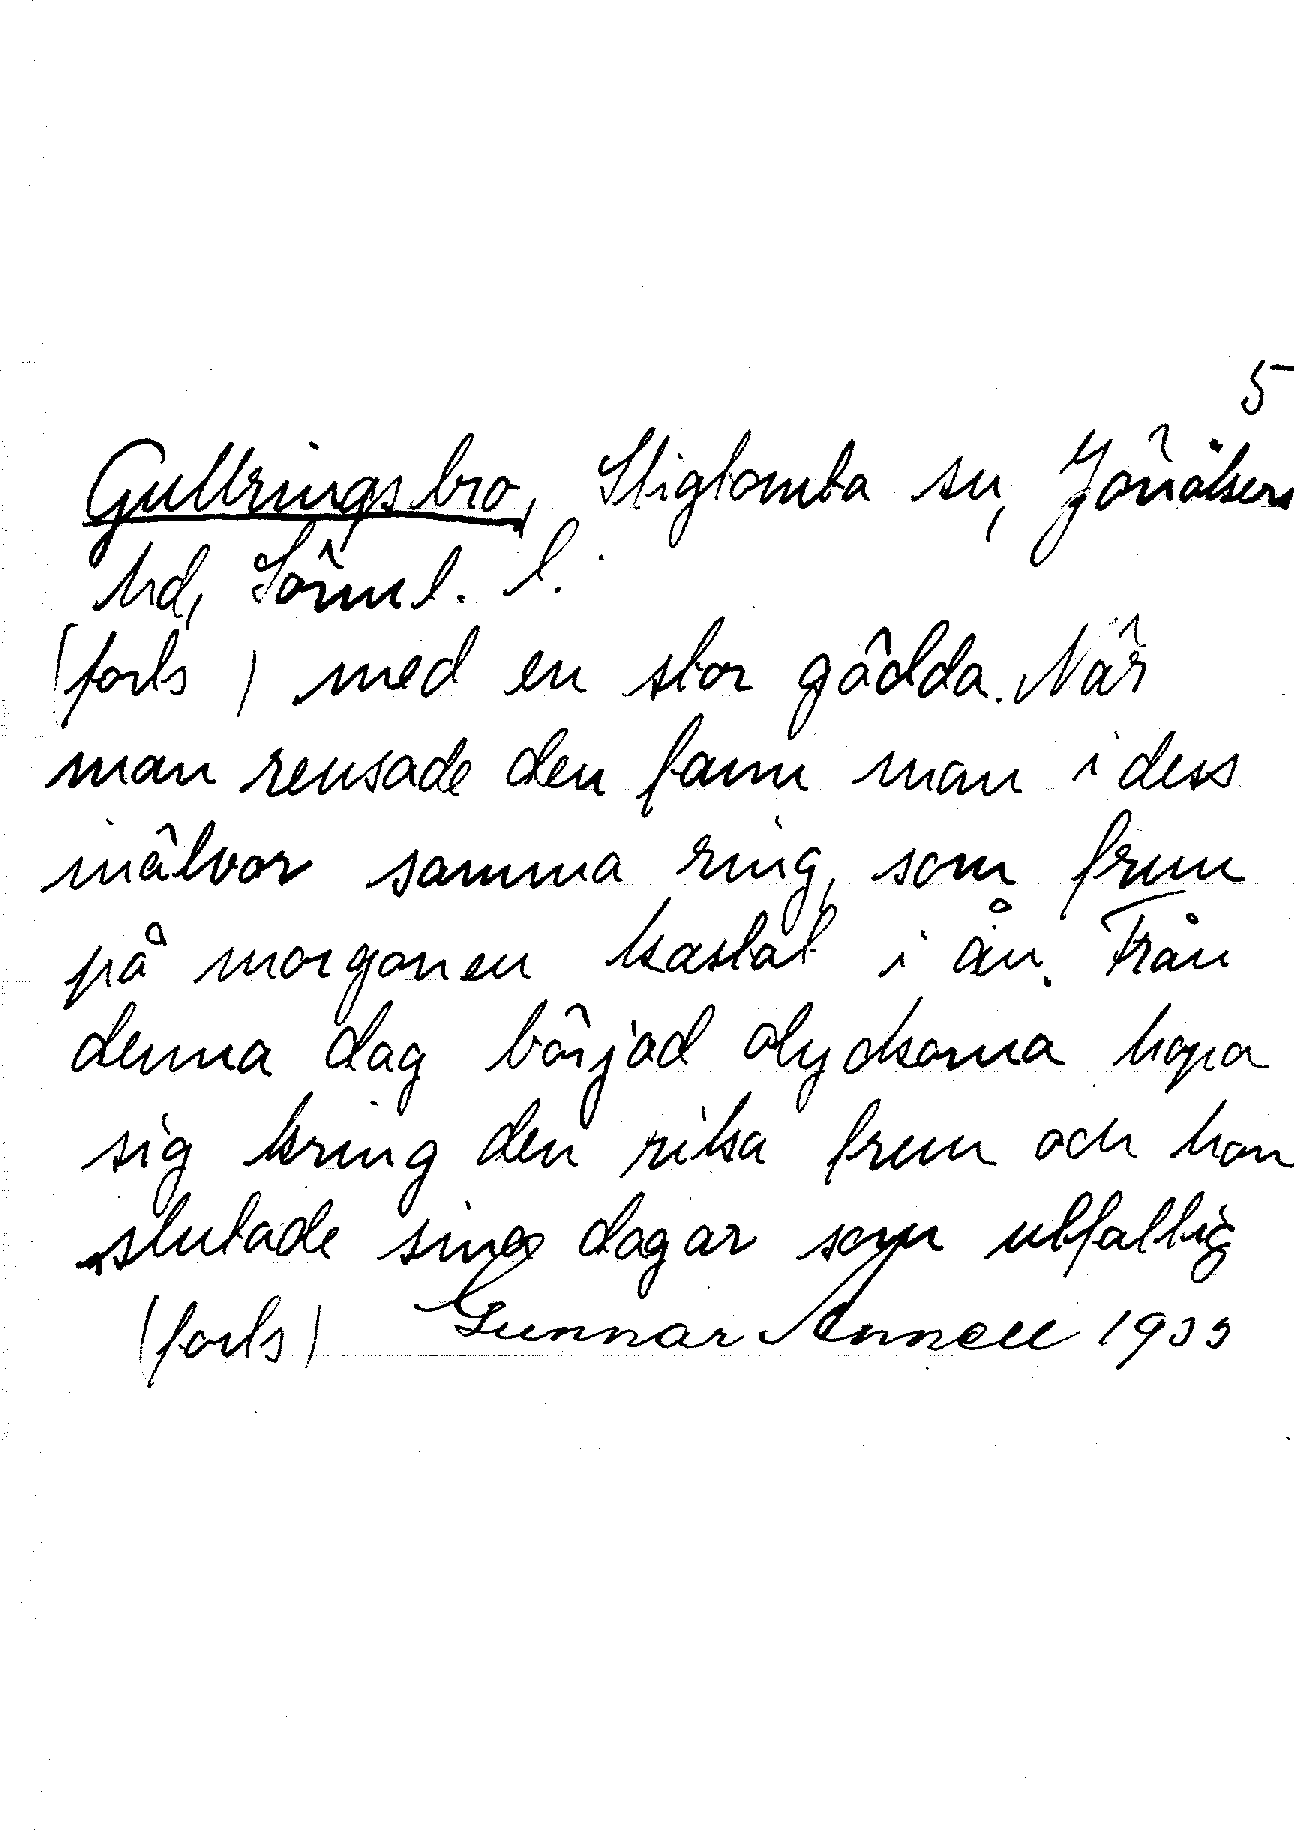 5
Gullringsbro, Stigtomta sn, Jönåkers
hd, Sörml. l.
(forts) med en stor gädda. När
man rensade den fann man i dess
inälvor samma ring, som frun
på morgonen kastat i ån. Från
denna dag börjad olyckorna hopa
sig kring den rika frun och hon
slutade sina dagar som utfattig
(forts) Gunnar Annell 1933